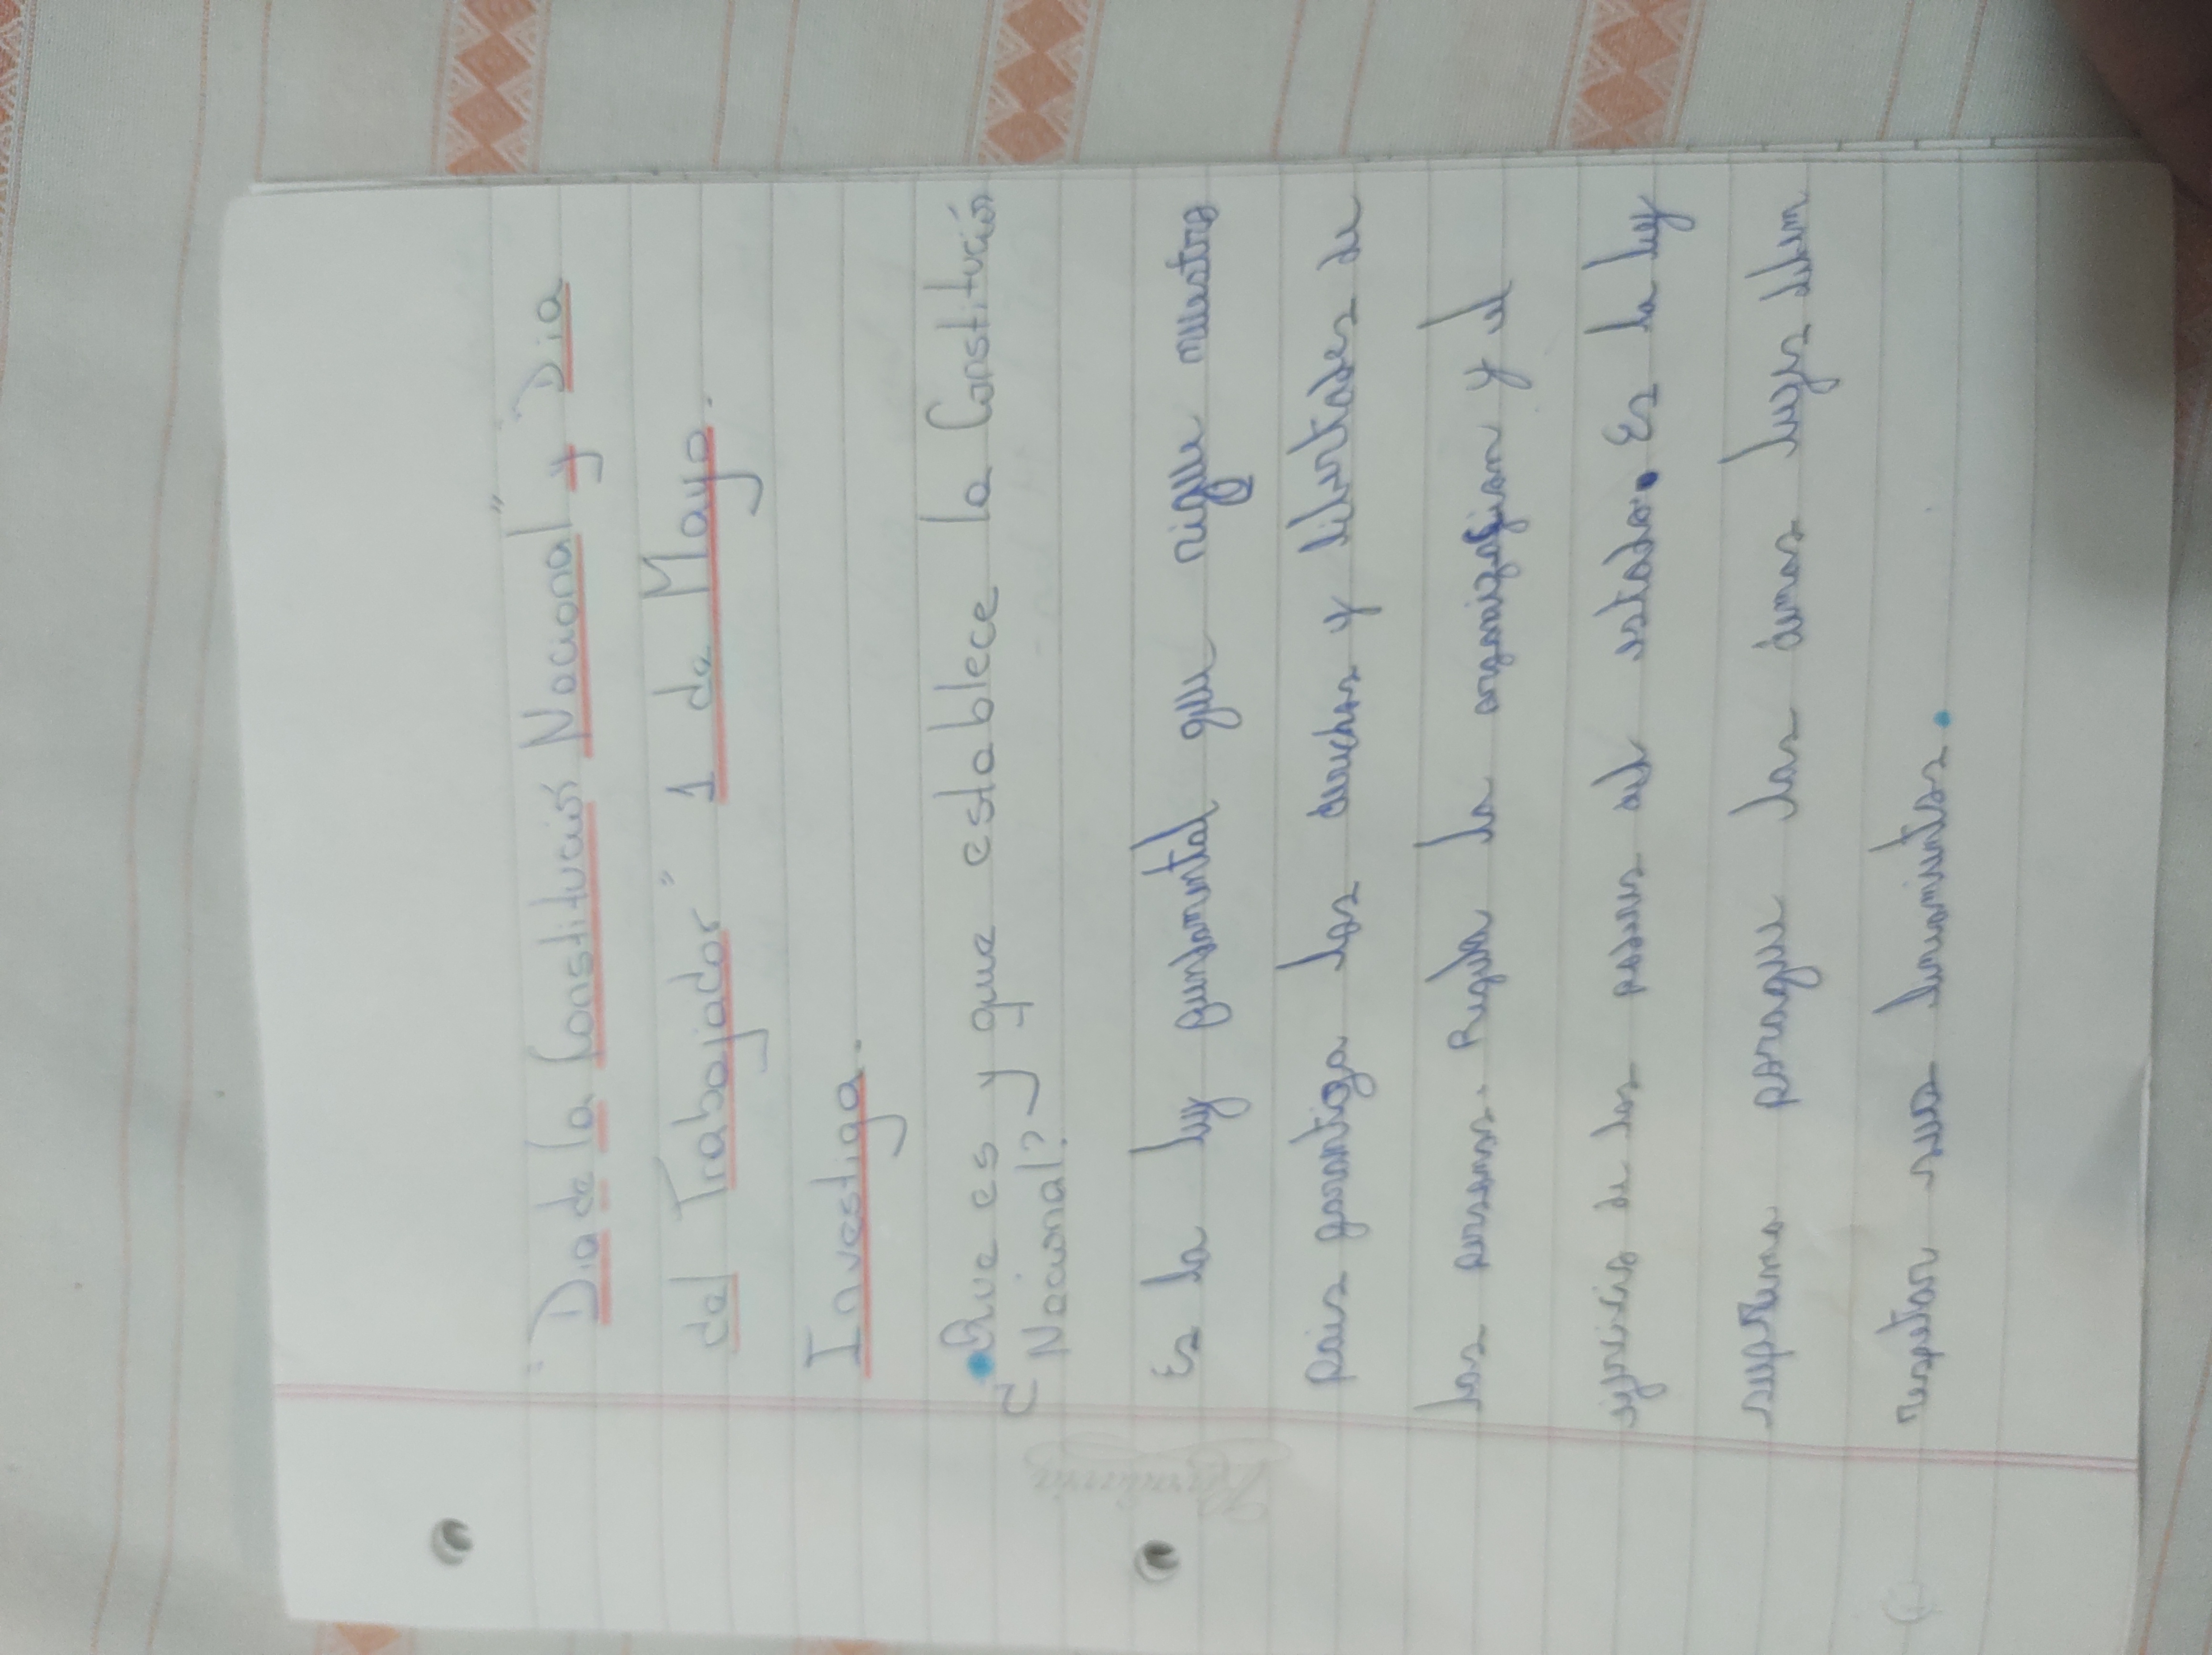 "Dia de la Constitución Nacional" y "Dia
del Trabajador" 1 de Mayo.
Investiga.
¿Que es y que establece la Constitución
Nacional?
Es la ley fundamental que rigue nuestro
pais garantiga los derechos y libertades de
las personas. Regula la organizasion y el
ejercicio de los poderes del estado. Es la ley
suprema porque las demas leyes deben
respetar sus lineamientos.
Rivadavia